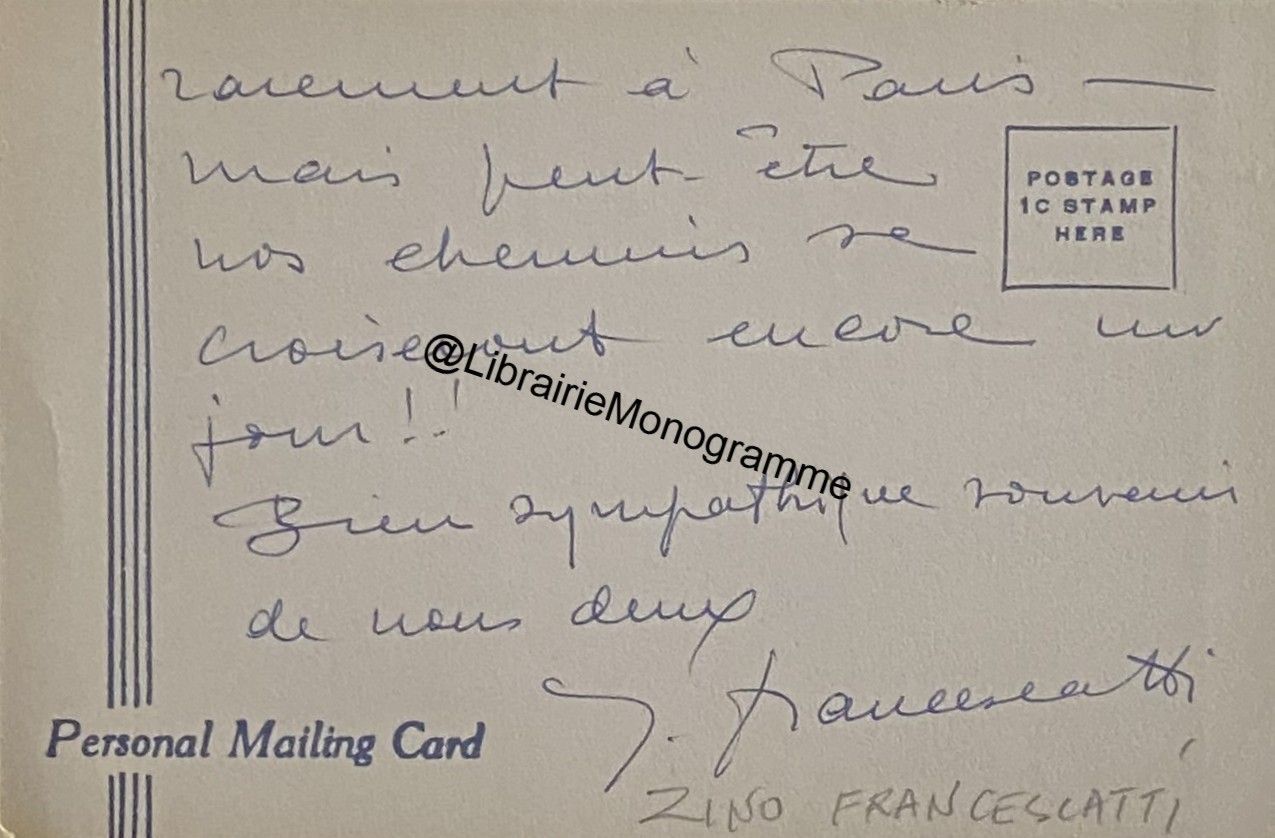 rarement à Paris —
mais peut-être
nos chemins se
croiseront encore un
jour!!
Bien sympathique souvenir
de nous deux
Z. Francescatti
ZINO FRANCESCATTI
POSTAGE
1C STAMP
HERE
Personal Mailing Card
@LibrairieMonogramme